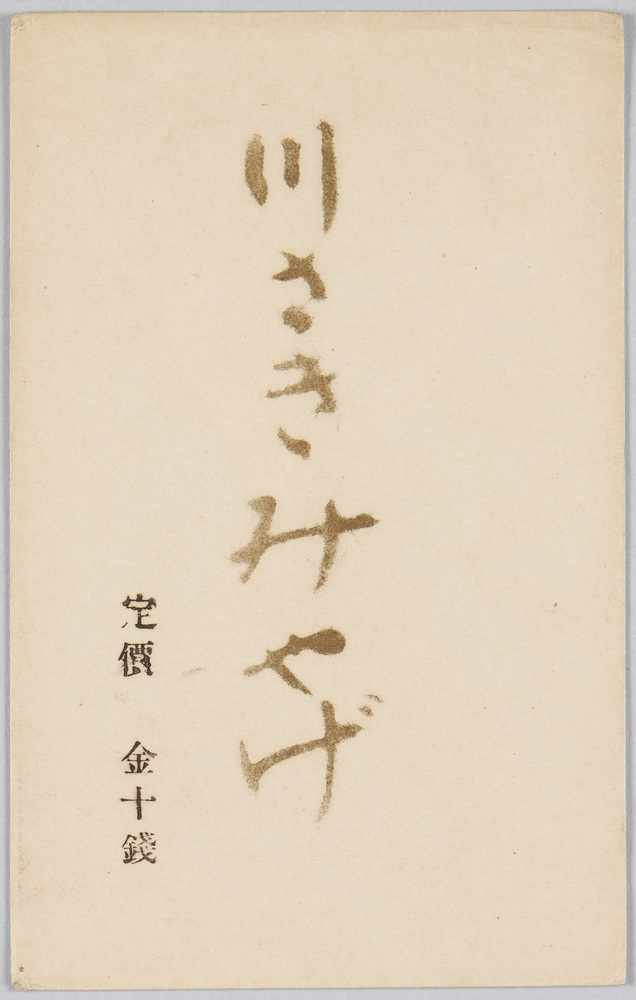 川さきみやげ
定價　金十錢